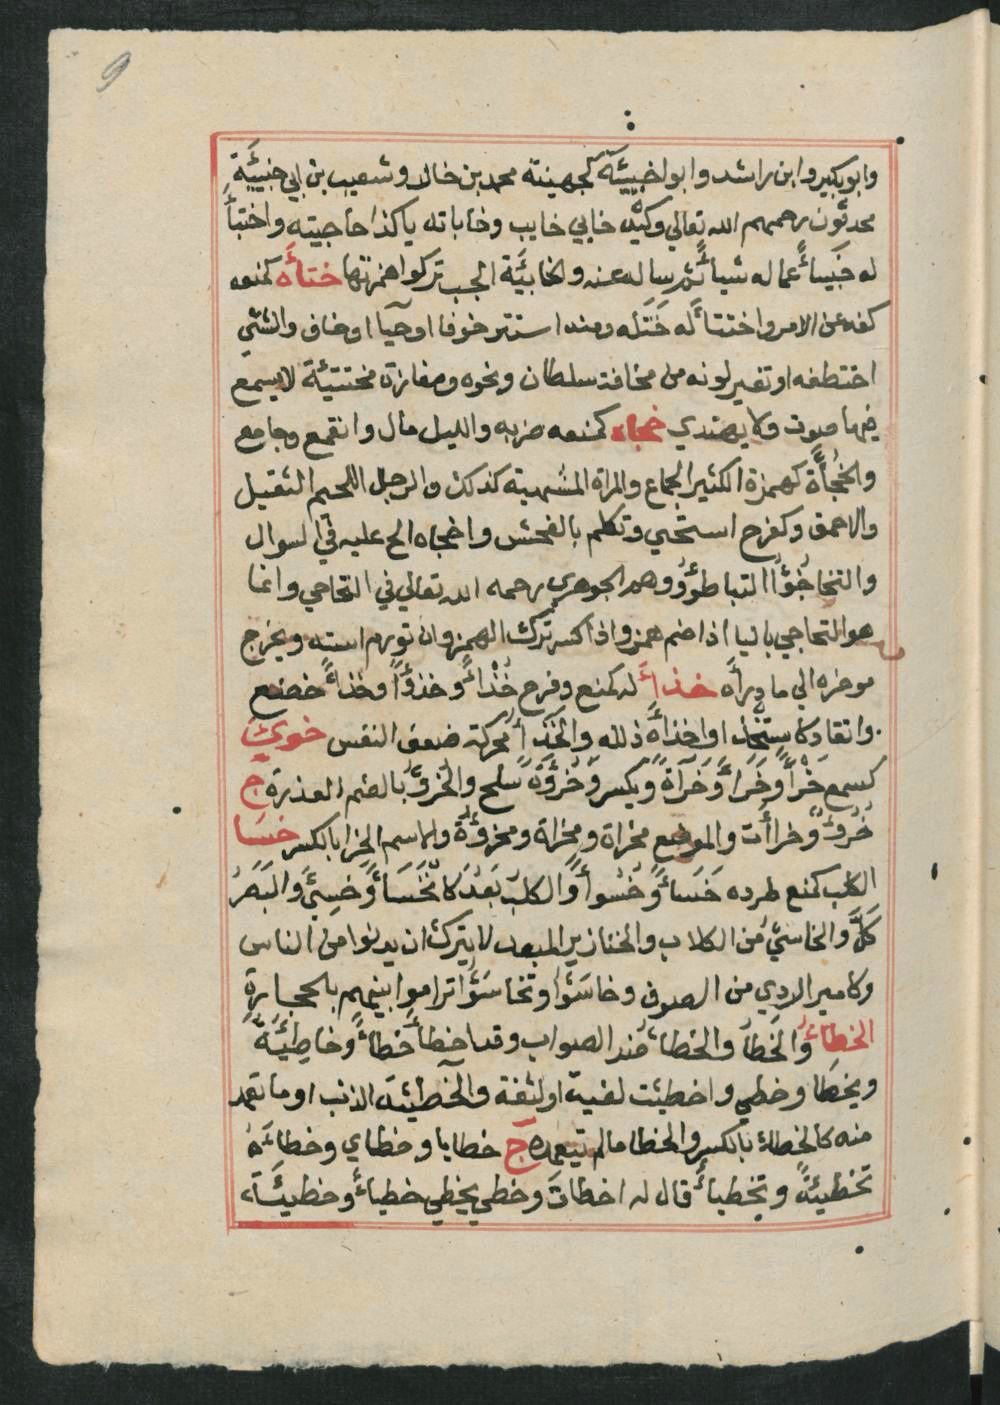 9
وابو بكير وابن راشد وابو اخبيئة كجهينة محمد بن خالد وشعيب بن ابي خبيئة
محدثون رحمهم الله تعالي وكيد خابي خايب وخاباته ياكذا حاجيته واختبأ
له خبيأ عما له شيأ ثم ساله عنه والخابيئة الحب تركوا همزتها ختأه كمنعه
كفه عن الامر واختتأ له ختله ومنه استتر خوفا او حيآ او خاف والشئي
اختطفه او تغير لونه من مخافة سلطان ونحوه ومفازة مختتيئة لا يسمع
فيها صوت ولا يهتدي خجاء كمنعه ضربه والليل مال وانقمع وجامع
والخجأة كهمزة الكثير الجماع والمراة المشتهية كذلك والرجل اللحيم الثقيل
والاحمق وكفرح استحيي وتكلم بالفحش واخجاه الح عليه في السوال
والتخاجؤ التباطؤ ووهم الجوهري رحمه الله تعالي في التحاجي وانما
هو التحاجي باليا اذا ضم همز واذا كسر ترك الهمز وان تورم استه ويخرج
موخره الي ما ورأه خذأ له كمنع وفرح خذأ وخذؤا وخذأ خضع
وانقاد كاستخذا واخذاه ذلله والخذأ محركة ضعف النفس خرئ
كسمع خرأ وخرأ وخرآة ويكسر وخروة سلح والخرؤ بالضم العذرة ج
خروء وخرأت والموضع مخراة ومخراة ومخروئة والاسم الخرا بالكسر خسا
الكلب كمنع طرده خسأ وخسوأ والكلب بعد كانخسأ وخسئ والبصر
كل والخاسئ من الكلاب والخنازير المبعد لا يترك ان يدنوا من الناس
وكامير الردي من الصوف وخاسئوا وتخاسئوا تراموا بينهم بالحجارة
الخطاء والخطا والخطاء ضد الصواب وقد اخطأ خطاء وخاطيئة
ويخطا وخطي واخطيت لغية او لثغة والخطيئة الذنب او ما تعمد
منه كالخطاء بالكسر والخطا ما لم يتعمده ج خطايا وخطاي وخطائه
تخطيئة وتخطيأ قال له اخطات وخطي يخطي خطيأ وخطيئة